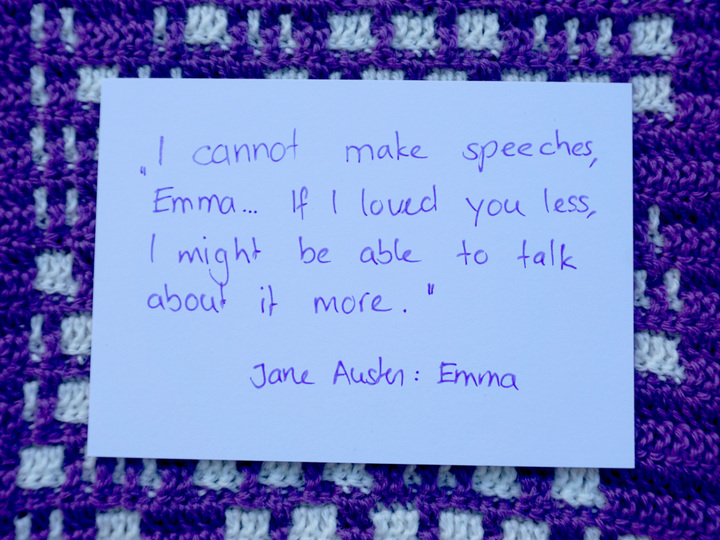 „I cannot make speeches,
Emma... If I loved you less,
I might be able to talk
about it more."
Jane Austen: Emma